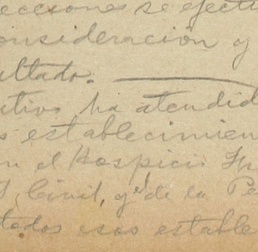 ecciones se efect
consideración y
ultado.
utivo ha atendid
s establecimien
n el Hospicio
Civil, y de la Pe
todos esos estable